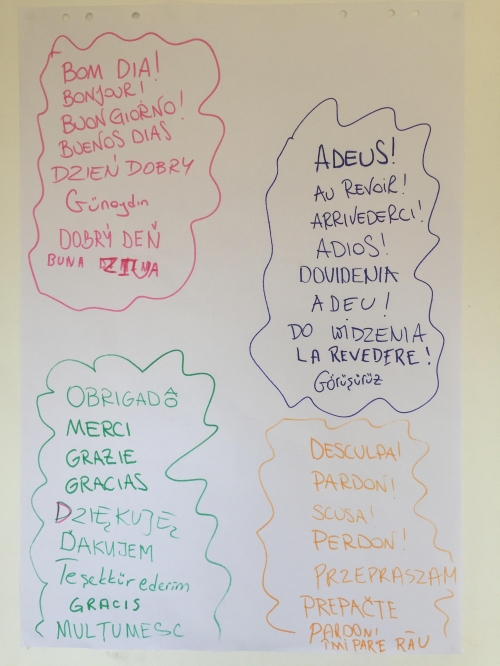 BOM DIA!
BONJOUR!
BUONGIORNO!
BUENOS DIAS
DZIEŃ DOBRY
Günaydın
DOBRÝ DEŇ
BUNA ZIUA
ADEUS!
AU REVOIR!
ARRIVEDERCI!
ADIOS!
DOVIDENIA
ADEU!
DO WIDZENIA
LA REVEDERE!
Görüşürüz
OBRIGADÔ
MERCI
GRAZIE
GRACIAS
DZIĘKUJĘ
ĎAKUJEM
Teşekkür ederim
GRACIS
MULȚUMESC
DESCULPA!
PARDON!
SCUSA!
PERDON!
PRZEPRASZAM
PREPAČTE
PARDON!
ÎMI PARE RĂU